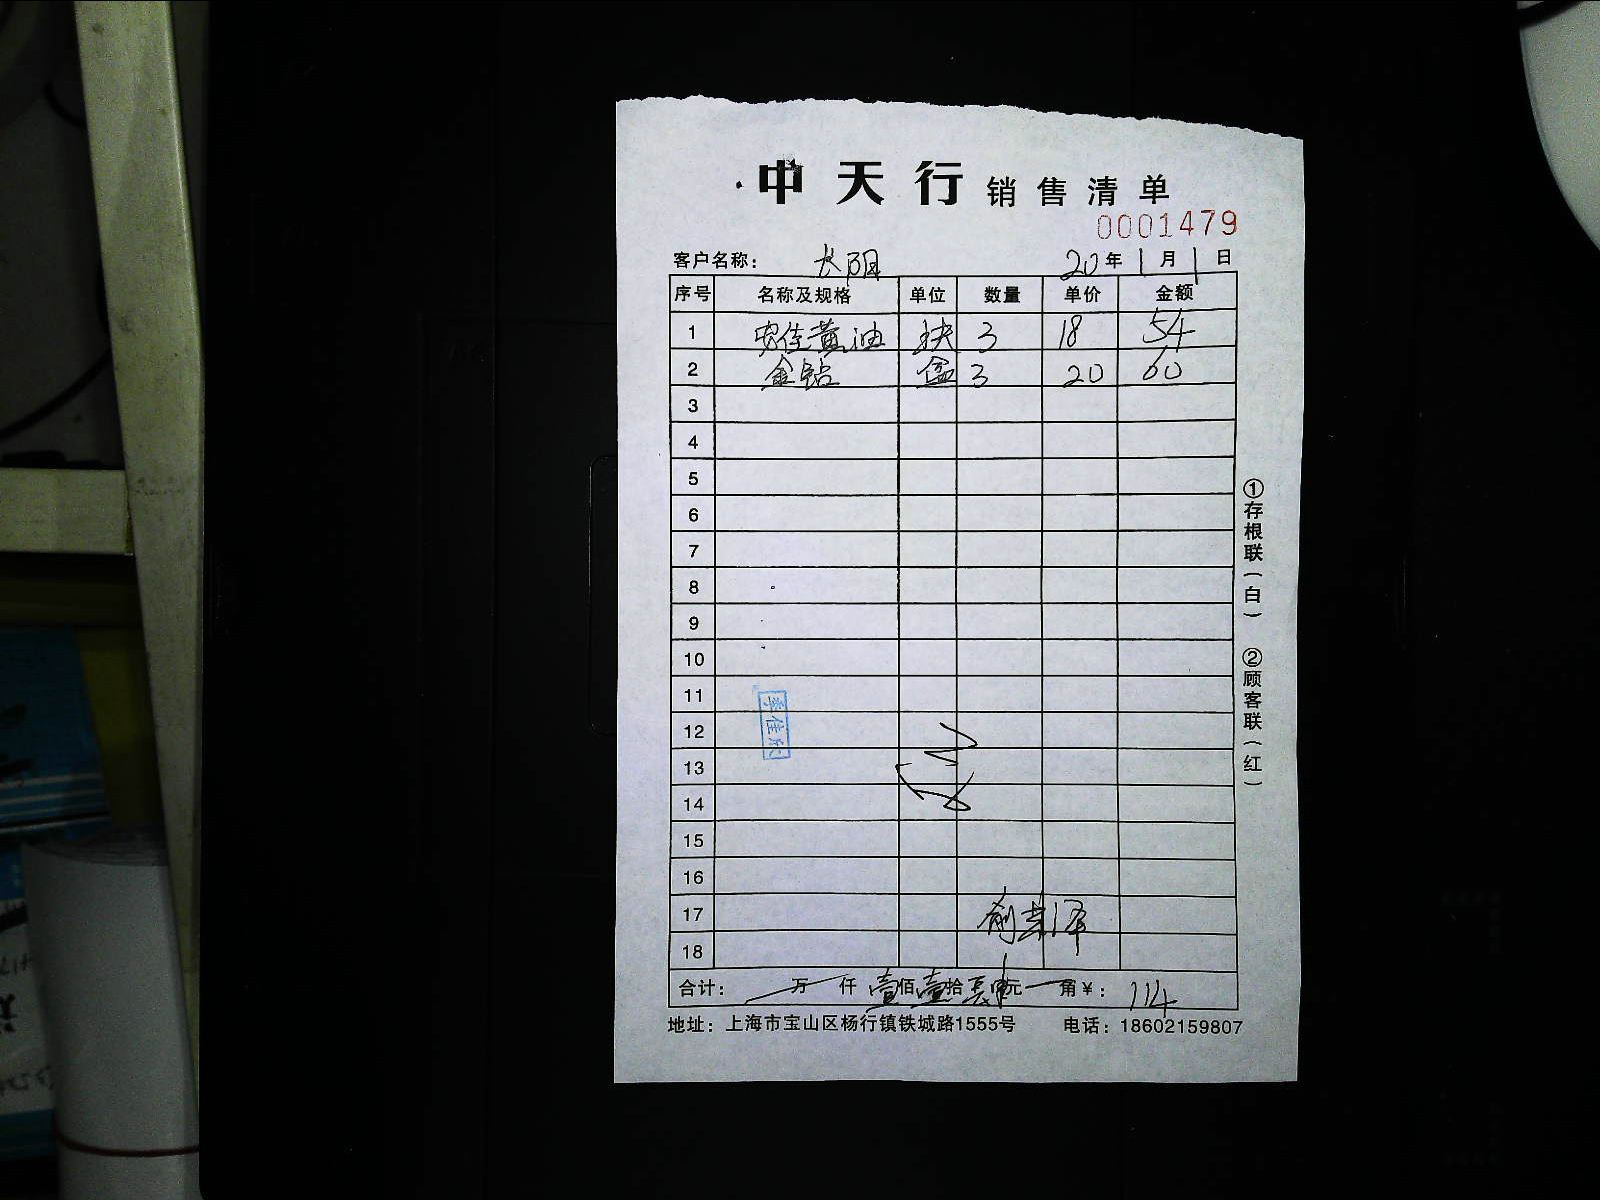 中天行 销售清单
0001479
客户名称: 长阳 20年1月1日
序号 名称及规格 单位 数量 单价 金额
1 安佳黄油 块 3 18 54
2 金钻 盒 3 20 60
3
4
5
6
7
8
9
10
11
12
13
14
15
16
17
18
合计: 万 仟 壹佰壹拾肆元 角 ¥: 114
地址: 上海市宝山区杨行镇铁城路1555号 电话: 18602159807
①存根联(白) ②顾客联(红)